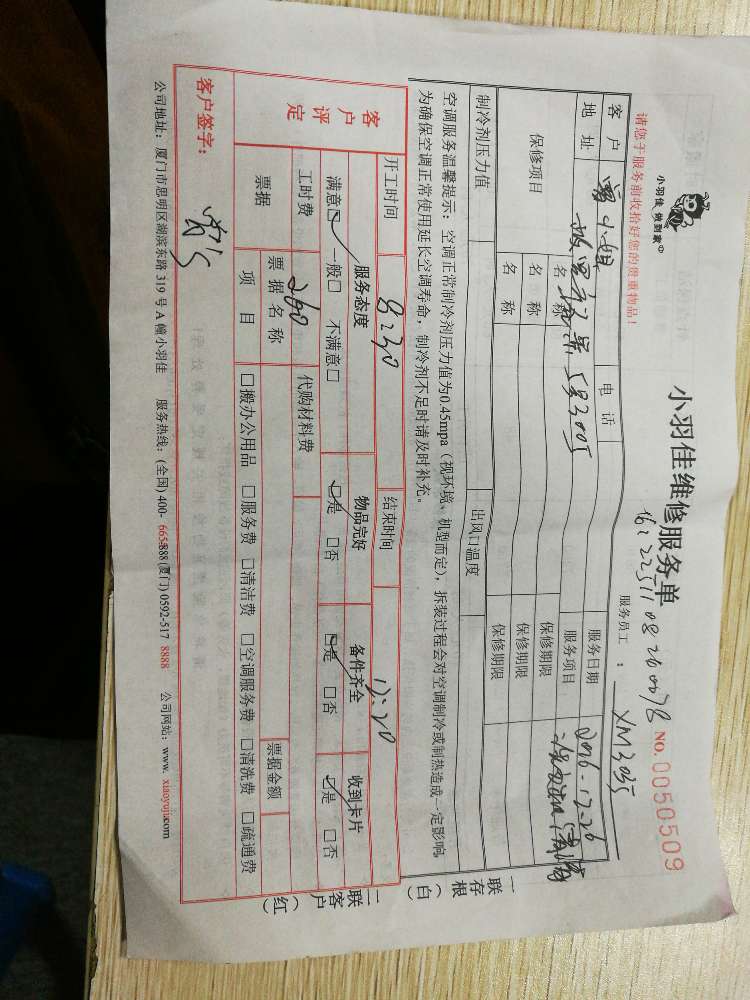 小羽佳·做到家
小羽佳维修服务单
NO. 0050509
请您于服务前收拾好您的贵重物品!
服务员工 : XM3035
客户 小姐 电话 服务日期 2016-12-26
地址 服务项目
保修项目 名称 保修期限
名称 保修期限
名称 保修期限
制冷剂压力值 出风口温度
空调服务温馨提示: 空调正常制冷剂压力值为0.45mpa (视环境、机型而定), 拆装过程会对空调制冷或制热造成一定影响,
为确保空调正常使用延长空调寿命, 制冷剂不足时请及时补充。
一联存根(白)
开工时间 8:30 结束时间 12:20
客户评定 服务态度 物品完好 备件齐全 收到卡片
满意☑ 一般□ 不满意□ ☑是 □否 ☑是 □否 ☑是 □否
工时费 260 代购材料费
票据 票据名称 票据金额
项目 □搬办公用品 □服务费 □清洁费 □空调服务费 □清洗费 □疏通费
客户签字:
二联客户(红)
公司地址: 厦门市思明区湖滨东路 319 号 A 幢小羽佳 服务热线: (全国) 400-665-888 (厦门) 0592-517 8888 公司网站: www. xiaoyujia.com